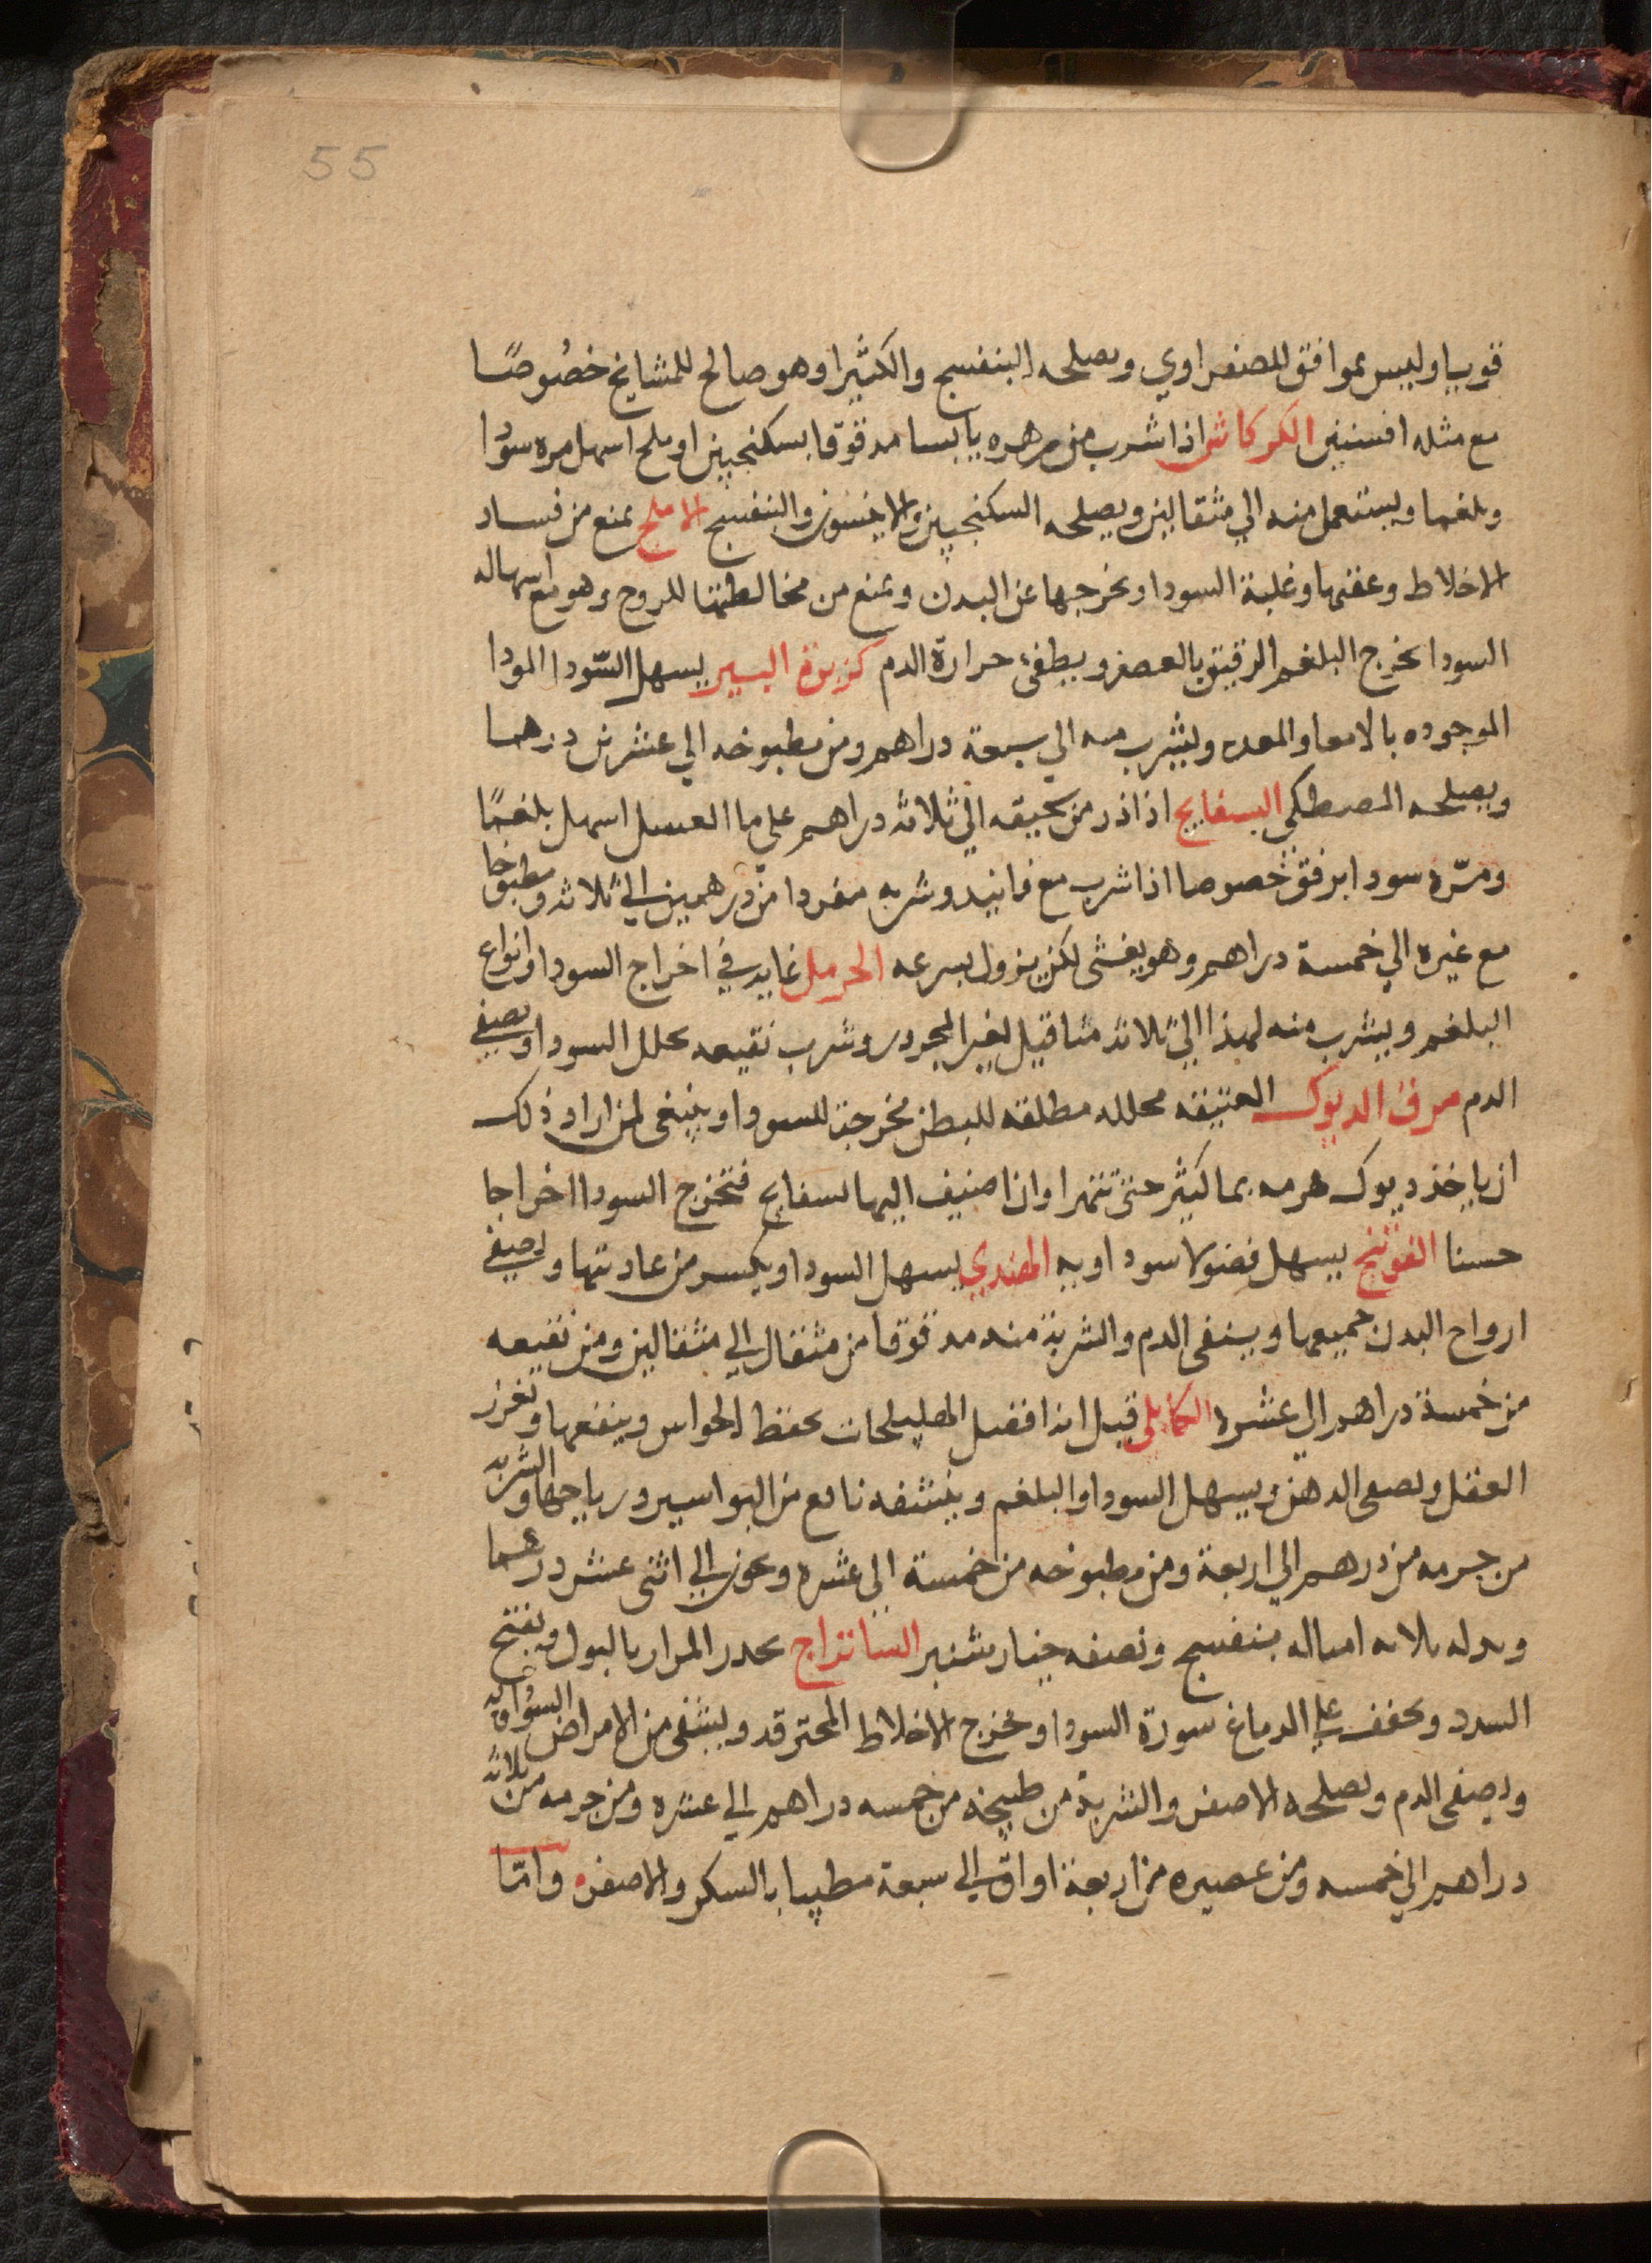 55
قويا وليس بموافق للصفراوي ويصلحه البنفسج والكثيرا وهو صالح للمشايخ خصُوصًا
مع مثله افسنتين الكركاش اذا شرب من زهره يابسا مدقوقا بسكنجبين او ملح اسهل مره سودا
وبلغما ويستعمل منه الي مثقالين ويصلحه السكنجبين والانيسون والبنفسج الاملج يمنع من فساد
الاخلاط وعفنها وغلبة السودا ويخرجها عن البدن ويمنع من مخالطتها للروح وهو مع اسهاله
السودا يخرج البلغم الرقيق بالعصر ويطفئ حرارة الدم كزبرة البير يسهل السّودا المودا
الموجوده بالامعا والمعده ويشرب منه الي سبعة دراهم ومن مطبوخه الي عشرين درهما
ويصلحه المصطكي البسفايج اذا ذر من سحيقه الي ثلاثه دراهم علي ما العسل اسهل بلغمًا
ومرّة سودا برفق خصوصا اذا شرب مع فانيد وشربه مفردا من درهمين الي ثلاثه ومطبوخا
مع غيره الي خمسة دراهم وهو يغثى لكن يزول بسرعه الحرمل غايه في اخراج السودا وانواع
البلغم ويشرب منه لهذا الي ثلاثة مثاقيل لغير المحرور وشرب نقيعه يحلل السودا ويصفي
الدم مرق الديوك العتيقه محلله مطلقه للبطن مخرجة للسودا وينبغي لمن اراد ذلك
ان ياخذ ديوك هرمه بما كثير حتى تتهرا وان اضيف اليها بسفايج فتخرج السودا اخراجا
حسنا الفوتنج يسهل فضولا سوداويه الهندي يسهل السودا ويكسر من عاديتها ويصفي
ارواح البدن جميعها وينقى الدم والشربة منه مدقوقا من مثقال الي مثقالين ومن نقيعه
من خمسة دراهم الي عشره الكابلي قيل انه افضل الهليلجات يحفظ الحواس وينفعها وتغزر
العقل ويصفى الدهن ويسهل السودا والبلغم وينشفه نافع من البواسير ورياحها والشربه
من جرمه من درهم الي اربعة ومن مطبوخه من خمسة الى عشره ويجوز الي اثنى عشر درهما
وبدله ثلاثه امثاله بنفسج ونصفه خيار شنبر الشاتراج يحدر المرار بالبول ويفتح
السدد ويخفف علي الدماغ سورة السودا ويخرج الاخلاط المحترقه ويشفى من الامراض السوداويه
ويصفى الدم ويصلحه الاصفر والشربة من طبيخه من خمسه دراهم الي عشره ومن جرمه من ثلاثه
دراهم الي خمسه ومن عصيره من اربعة اواق الي سبعة مطيبا بالسكر والاصفر وامّا